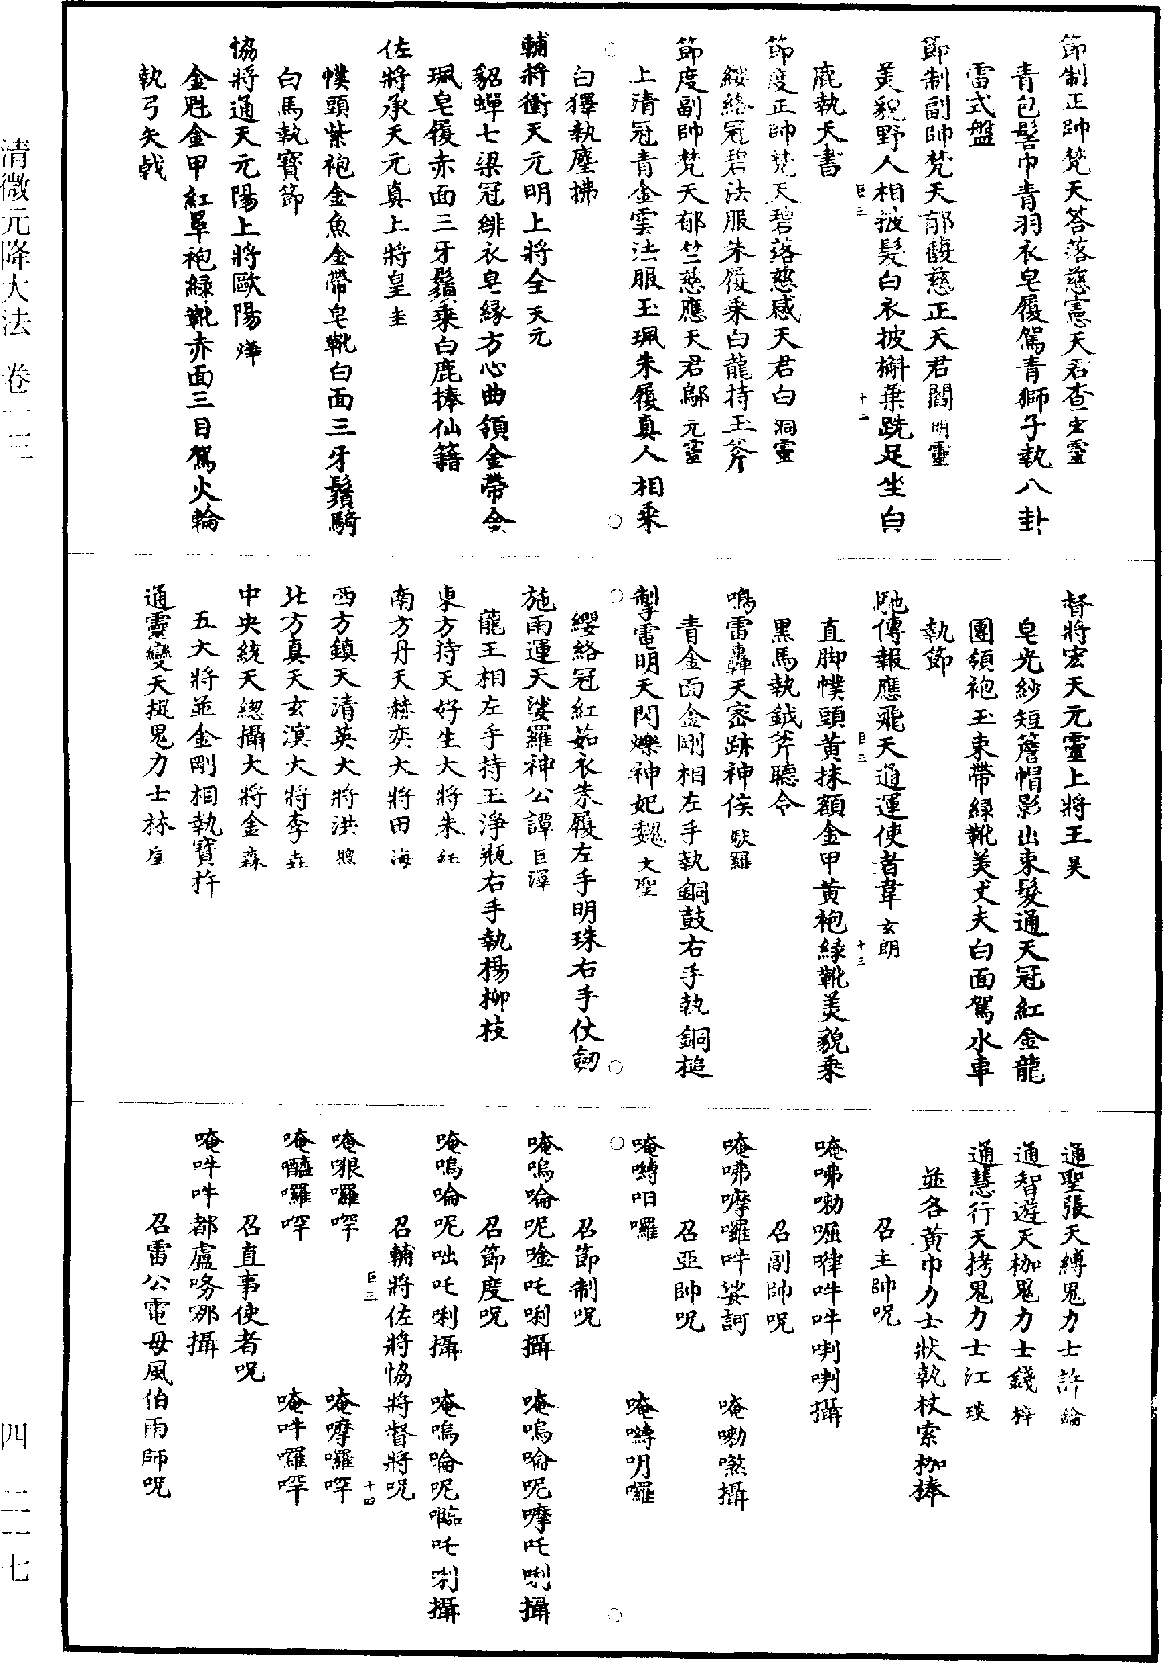 節制正帥梵天答落慈憲天君查士靈
青包髻巾青羽衣皂履駕青獅子執八卦
雷式盤
節制副帥梵天郁馥慈正天君閻明靈
美貌野人相披髮白衣披槲葉跣足坐白
鹿執天書
節度正帥梵天碧落慈感天君白洞靈
纓絡冠碧法服朱履乘白龍持玉斧
節度副帥梵天郁竺慈應天君鄔元靈
上清冠青金雲法服玉珮朱履真人相乘
白獬執塵拂
輔將衝天元明上將全天元
貂蟬七梁冠緋衣皂緣方心曲領金帶金
珮皂履赤面三牙鬚乘白鹿捧仙籍
佐將承天元真上將皇圭
幞頭紫袍金魚金帶皂靴白面三牙鬚騎
白馬執寶節
協將通天元陽上將歐陽燁
金甦金甲紅罩袍綠靴赤面三目駕火輪
執弓矢戟
督將宏天元靈上將王昊
皂光紗短簷帽影出束髮通天冠紅金龍
團領袍玉束帶綠靴美丈夫白面駕水車
執節
馳傳報應飛天通運使者韋玄朗
直脚幞頭黃抹額金甲黃袍綠靴美貌乘
黑馬執鉞斧聽令
鳴雷轟天密跡神侯馱羅
青金面金剛相左手執銅鼓右手執銅槌
掣電明天閃爍神妃魏文聖
纓絡冠紅茹衣朱履左手明珠右手仗劒
施雨運天娑羅神公譚巨澤
龍王相左手持玉淨瓶右手執楊柳枝
東方待天好生大將朱
南方丹天赫奕大將田海
西方鎮天清英大將洪
北方真天玄漠大將李垚
中央統天總攝大將金森
五大將並金剛相執寶杵
通靈變天捉鬼力士林
通聖張天縛鬼力士許
通智遊天枷鬼力士錢梓
通慧行天拷鬼力士江瑛
並各黃巾力士狀執杖索枷捧
召主帥呪
唵咈嘞囉嘩吽吽唎唎攝
召副帥呪
唵咈嚤囉吽娑訶　唵嘞喋攝
召亞帥呪
唵嚩呬囉　唵嚩明囉
召節制呪
唵嗚㖮呢唫吒唎攝　唵嗚㖮呢嚤吒唎攝
召節度呪
唵嗚㖮呢咄吒唎攝　唵嗚㖮呢㘋吒唎攝
召輔將佐將恊將督將呪
唵哏囉㖃　唵嚤囉㖃
唵囉㖃　唵吽囉㖃
召直事使者呪
唵吽吽都盧咯哪攝
召雷公電母風伯雨師呪
清微元降大法　卷一三
四　二一七